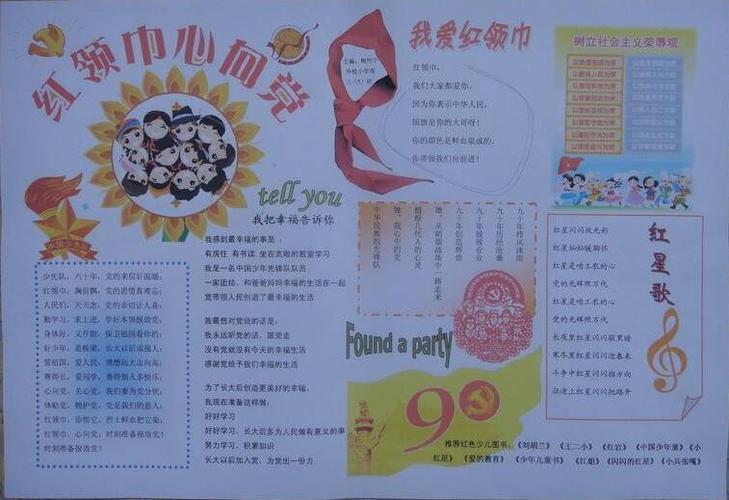 红领巾心向党
我爱红领巾
红领巾，
我们大家都爱你，
因为你表示中华人民，
国旗是你的大哥呀！
你的颜色是鲜血染成的，
你带领我们向前进！
树立社会主义荣辱观
tell you
我把幸福告诉你
我感到最幸福的事是：
有房住 有书读 坐在宽敞的教室学习
我是一名中国少年先锋队队员
一家团结，和爸爸妈妈幸福的生活在一起
党带领人民创造了最幸福的生活
我最想对党说的话是：
我永远听党的话，跟党走
没有党就没有今天的幸福生活
感谢党给予我们幸福的生活
为了长大后创造更美好的幸福，
我现在准备这样做：
好好学习
好好学习，长大后多为人民做有意义的事
努力学习，积累知识
长大以后加入党，为党出一份力
少先队，六十年，党的来信好温暖；
红领巾，胸前飘，党的恩情真难忘；
人民们，天天念，党的亲切让人喜；
勤学习，求上进，学好本领报效党；
身体好，又开朗，保卫祖国看你的；
好少年，是栋梁，长大以后成强人；
爱祖国，爱人民，理想远大志向高；
尊师长，爱同学，善待别人多快乐；
心向党，关心党，我们要为党分忧；
体贴党，拥护党，党是我们的恩人；
红领巾，珍惜它，烈士鲜血把它染；
红领巾，心向党；时刻准备报效党！
时刻准备报效党！
九十年栉风沐雨
九十年历经沧桑
九十年兢兢业业
九十年创造辉煌
她，从硝烟战场中一路走来
她，我心中的党
红星歌
红星闪闪放光彩
红星灿灿暖胸怀
红星是咱工农的心
党的光辉照万代
红星是咱工农的心
党的光辉照万代
长夜里红星闪闪驱黑暗
寒冬里红星闪闪迎春来
斗争中红星闪闪指方向
征途上红星闪闪把路开
Found a party
90
推荐红色少儿图书：《刘胡兰》《王二小》《红岩》《中国少年童》《小
红星》《爱的教育》《少年儿童书》《江姐》《闪闪的红星》《小兵张嘎》